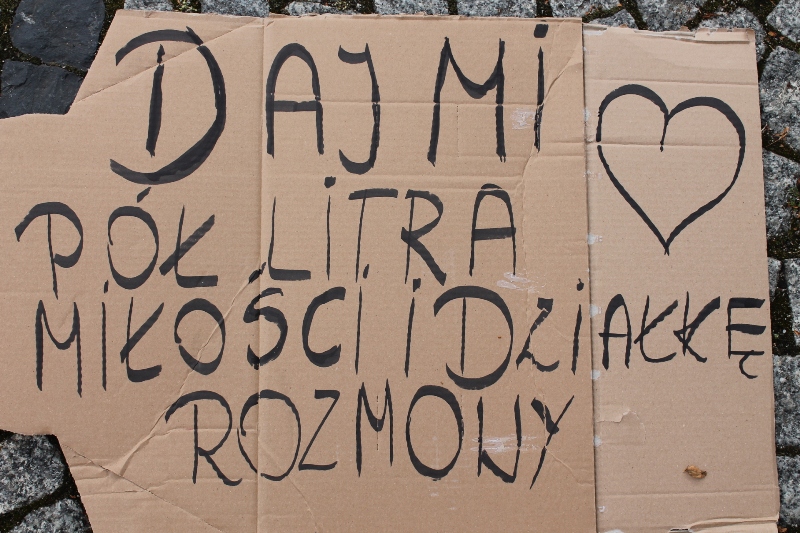 DAJ MI
PÓŁ LITRA
MIŁOŚCI I DZIAŁKĘ
ROZMOWY